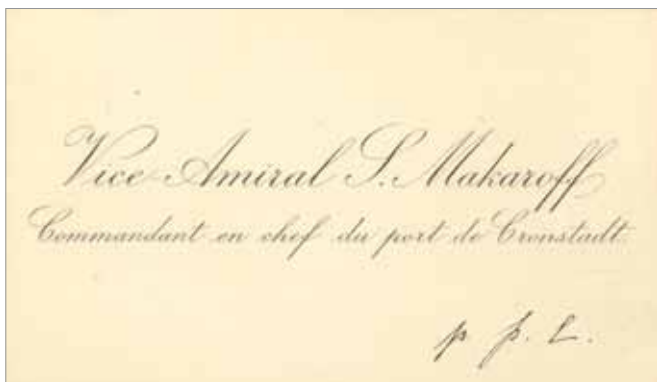 Vice-Amiral S. Makaroff
Commandant en chef du port de Cronstadt.
p. f. L.